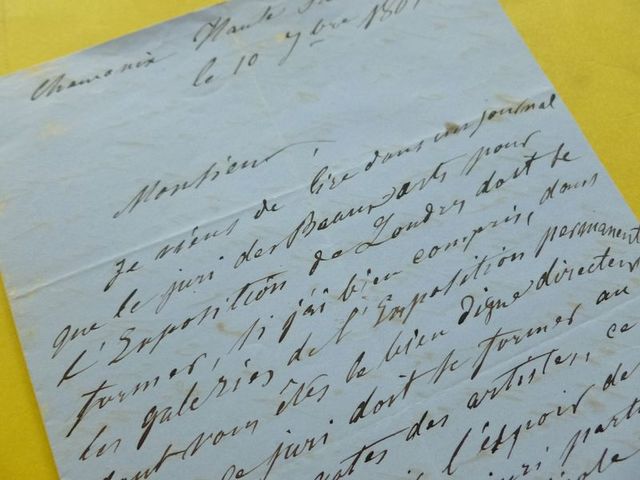 Chamonix Haute
le 10 7bre 186
Monsieur,
Je viens de lire dans un journal
que le juri des Beaux arts pour
l'Exposition de Londres doit se
former, si j'ai bien compris, dans
les galeries de l'Exposition permanente
dont vous êtes le bien digne directeur
le juri doit se former au
des artistes, ce
l'espoir de
juri